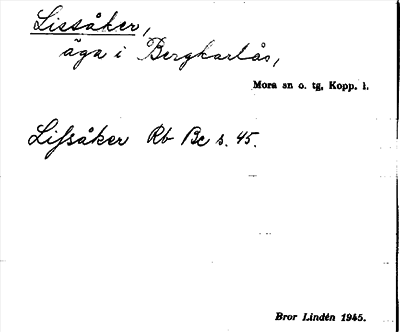 Lissåker,
äga i Bergkarlås,
Mora sn o. tg, Kopp. l.
Lifsåker Rb Bc s. 45.
Bror Lindén 1945.